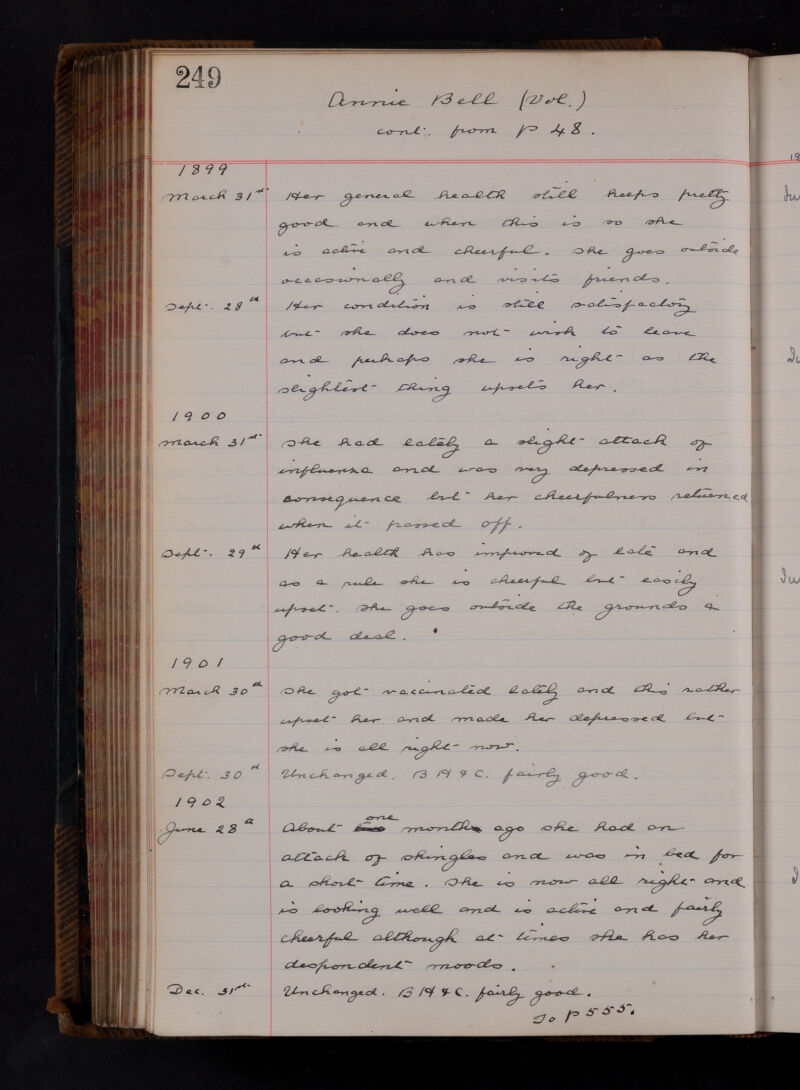 249
Annie Bell (Vol.)
cont. from p 48.
1899
March 31st Her general health still keeps pretty
good and when this is so she
is active and cheerful. She goes outside
occasionally and visits friends.
Sept. 28th Her condition is still satisfactory
but she does not wish to leave
and perhaps she is right as the
slightest thing upsets her.
1900
March 31st She had lately a slight attack of
influenza and was very depressed in
consequence but her cheerfulness returned
when it passed off.
Sept. 29th Her health has improved of late and
as a rule she is cheerful but easily
upset. She goes outside the grounds a
good deal.
1901
March 30th She got vaccinated lately and this rather
upset her and made her depressed but
she is all right now.
Sept. 30th Unchanged. B H & C. fairly good.
1902
June 28th About two one months ago she had an
attack of shingles and was in bed for
a short time. She is now all right and
is looking well and is active and fairly
cheerful although at times she has her
despondent moods.
Dec. 31st Unchanged. B H & C. fairly good.
To p 555.